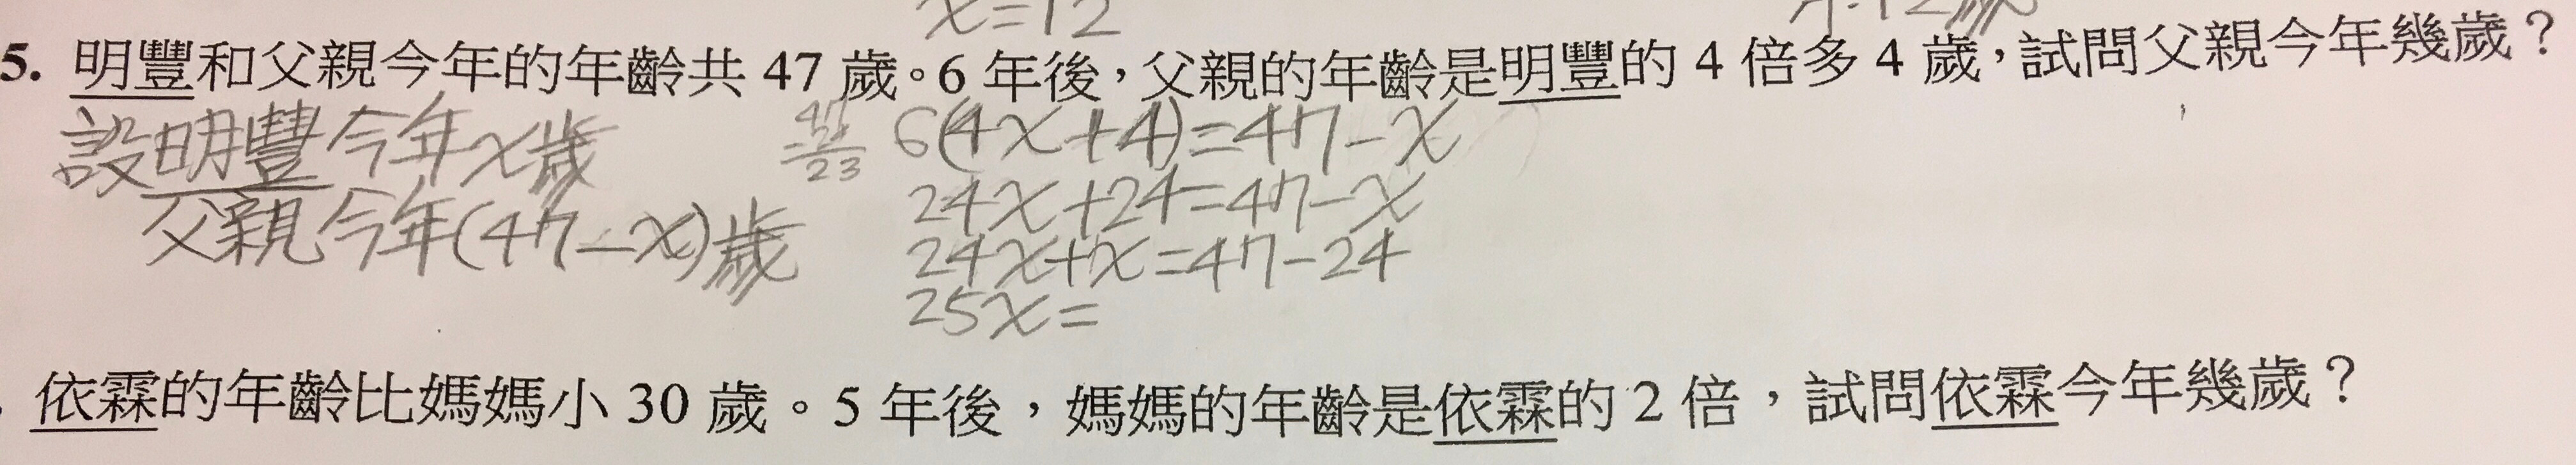 x=12
5. 明豐和父親今年的年齡共 47 歲。6 年後，父親的年齡是明豐的 4 倍多 4 歲，試問父親今年幾歲？
設明豐今年x歲
父親今年(47-x)歲
6(4x+4)=47-x
24x+24=47-x
24x+x=47-24
25x=
依霖的年齡比媽媽小 30 歲。5 年後，媽媽的年齡是依霖的 2 倍，試問依霖今年幾歲？